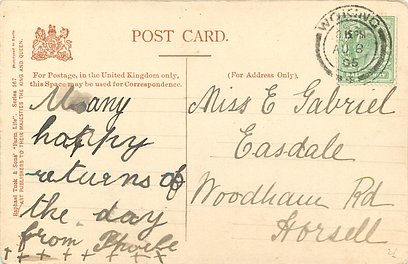 POST CARD.
For Postage, in the United Kingdom only,
this Space may be used for Correspondence.
(For Address only.)
Raphael Tuck & Sons' "Farm Life" Series
ART PUBLISHERS TO THEIR MAJESTIES THE KING AND QUEEN.
WOKING
AU 8
05
Many
happy
returns of
the day
from Phoebe
+ + + + + + +
Miss E Gabriel
Easdale
Woodham Rd
Horsell